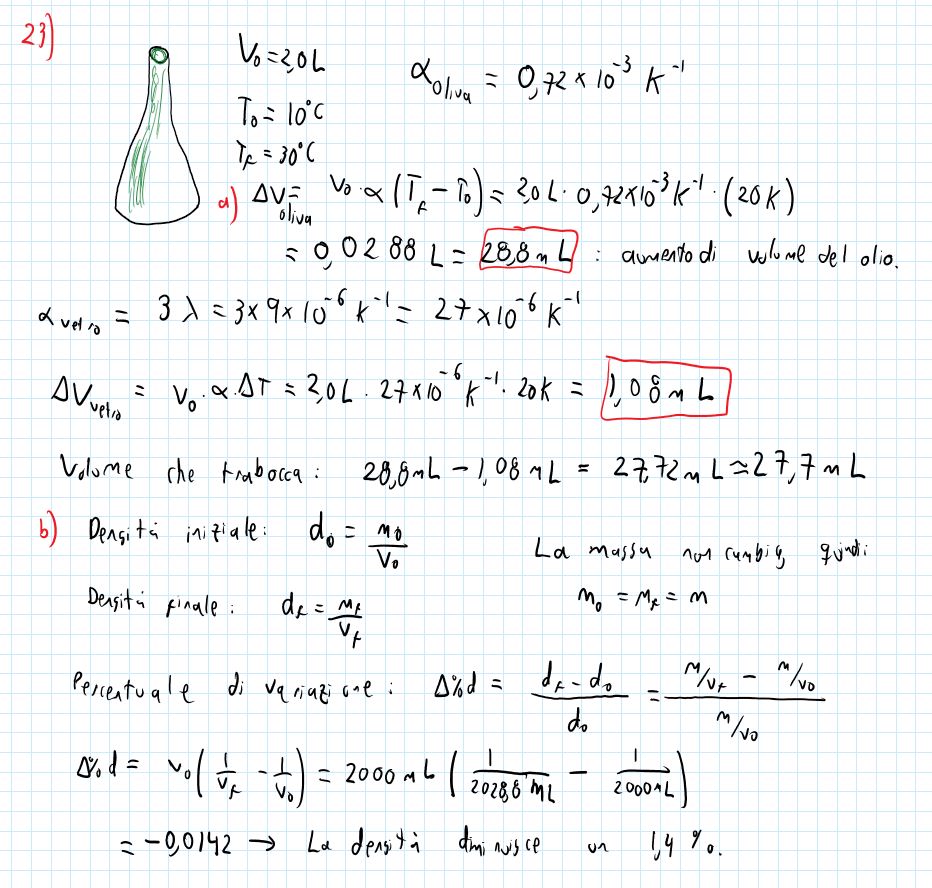 23)
V₀ = 2,0 L
α oliva = 0,72 × 10⁻³ K⁻¹
T₀ = 10°C
T_f = 30°C
a) ΔV oliva = V₀ · α (T_f − T₀) = 2,0 L · 0,72×10⁻³ K⁻¹ · (20 K)
= 0,0288 L = 28,8 mL : aumento di volume del olio.
α vetro = 3 λ = 3 × 9 × 10⁻⁶ K⁻¹ = 27 × 10⁻⁶ K⁻¹
ΔV vetro = V₀ · α · ΔT = 2,0 L · 27×10⁻⁶ K⁻¹ · 20 K = 1,08 mL
Volume che trabocca : 28,8 mL − 1,08 mL = 27,72 mL ≃ 27,7 mL
b) Densità iniziale : d₀ = m₀/V₀
La massa non cambia, quindi
Densità finale : d_f = m_f/V_f
m₀ = m_f = m
Percentuale di variazione : Δ%d = (d_f − d₀)/d₀ = (m/V_f − m/V₀)/(m/V₀)
Δ%d = V₀ (1/V_f − 1/V₀) = 2000 mL (1/2028,8 mL − 1/2000 mL)
= −0,0142 → La densità diminuisce un 1,4 %.